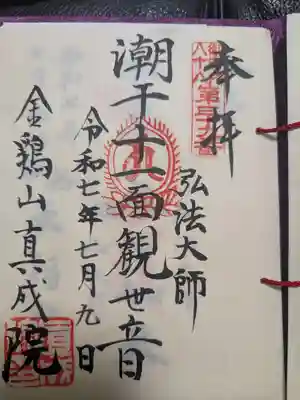 奉拝
弘法大師
潮干十一面観世音
令和七年七月九日
金鶏山真成院